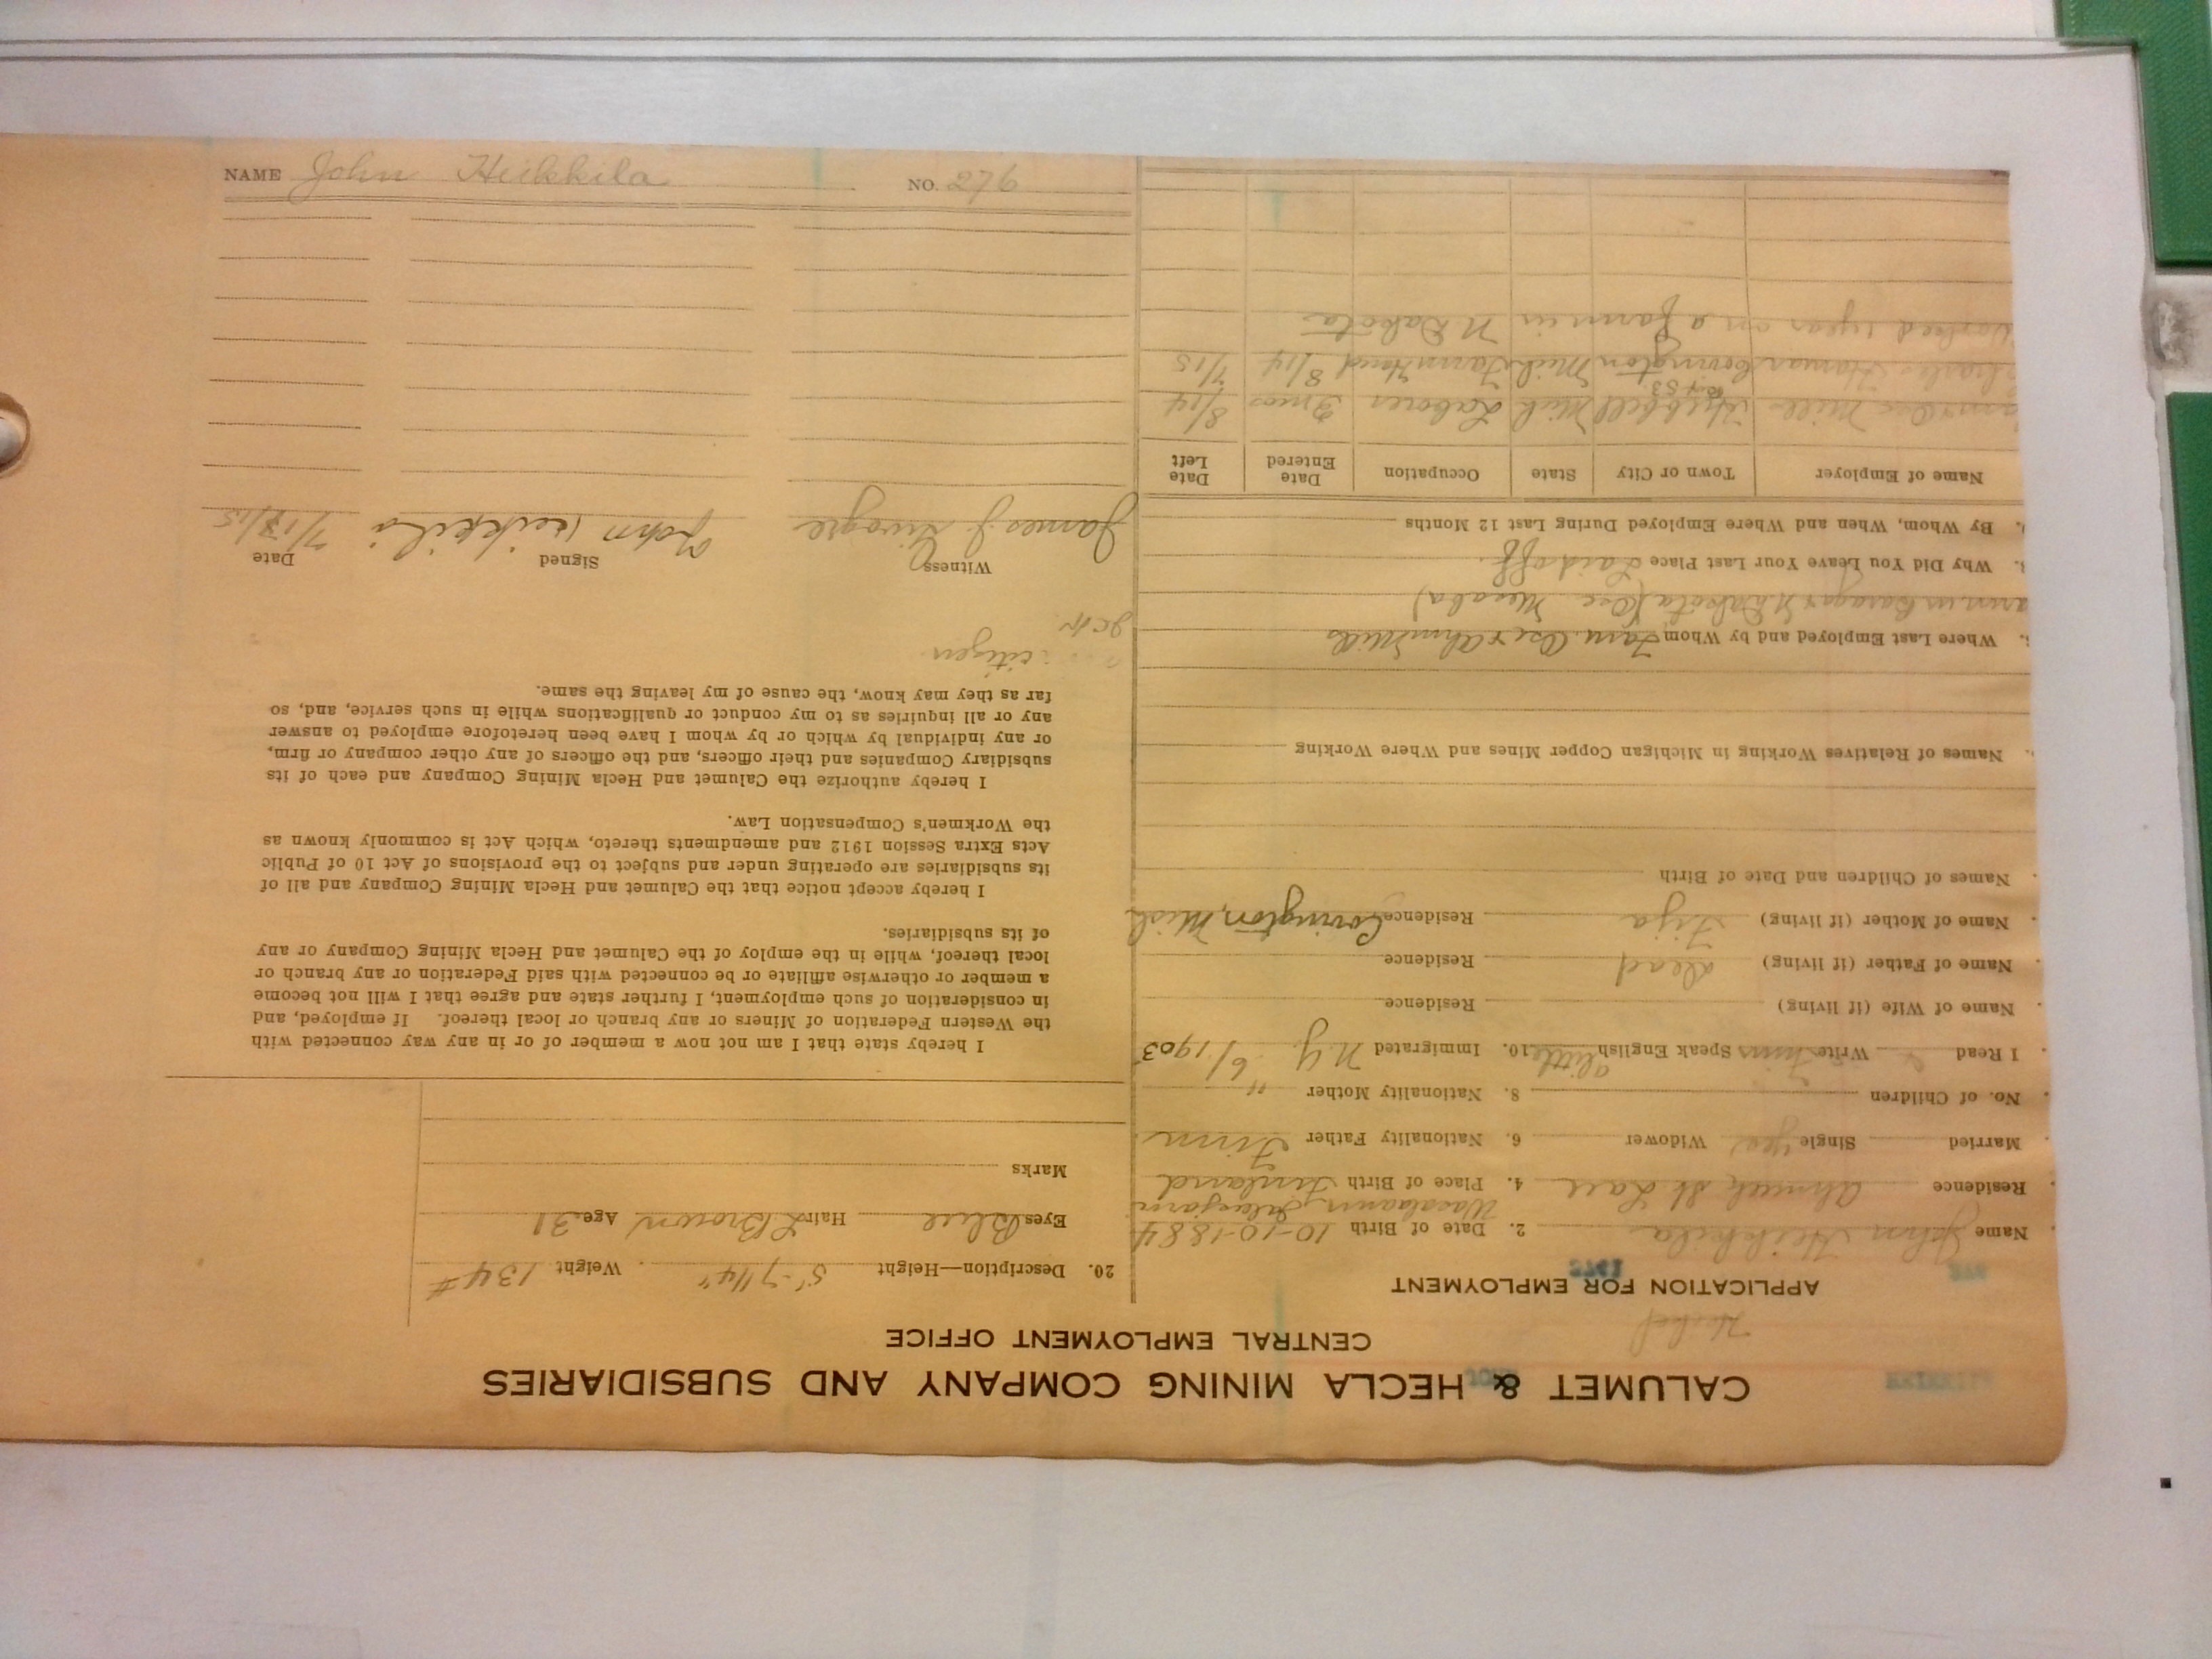 CALUMET & HECLA MINING COMPANY AND SUBSIDIARIES
CENTRAL EMPLOYMENT OFFICE
APPLICATION FOR EMPLOYMENT
Name John Heikkila 2. Date of Birth 10-10-1884
Residence Ahmeek St Lall 4. Place of Birth Finland
Married Single yes Widower 6. Nationality Father Finn
No. of Children 8. Nationality Mother "
I Read Write Finns Speak English a little 10. Immigrated N.Y. 6/1903
Name of Wife (if living) Residence
Name of Father (if living) dead Residence
Name of Mother (if living) Residence Covington, Mich
Names of Children and Date of Birth
Names of Relatives Working in Michigan Copper Mines and Where Working
Where Last Employed and by Whom
Why Did You Leave Your Last Place Laid off.
By Whom, When and Where Employed During Last 12 Months
Name of Employer Town or City State Occupation Date Entered Date Left
Mill Hubbell Mich Laborer 3 mos 8/14
Charles Covington Mich Farm Hand 8/14 7/15
Worked 1 year on a farm in N Dakota
20. Description—Height 5'-7 1/4" Weight 134#
Eyes Blue Hair L Brown Age 31
Marks
I hereby state that I am not now a member of or in any way connected with
the Western Federation of Miners or any branch or local thereof. If employed, and
in consideration of such employment, I further state and agree that I will not become
a member or otherwise affiliate or be connected with said Federation or any branch or
local thereof, while in the employ of the Calumet and Hecla Mining Company or any
of its subsidiaries.
I hereby accept notice that the Calumet and Hecla Mining Company and all of
its subsidiaries are operating under and subject to the provisions of Act 10 of Public
Acts Extra Session 1912 and amendments thereto, which Act is commonly known as
the Workmen's Compensation Law.
I hereby authorize the Calumet and Hecla Mining Company and each of its
subsidiary Companies and their officers, and the officers of any other company or firm,
or any individual by which or by whom I have been heretofore employed to answer
any or all inquiries as to my conduct or qualifications while in such service, and, so
far as they may know, the cause of my leaving the same.
citizen
Witness Signed Date
James J. John Heikkila 7/17/15
NAME John Heikkila NO. 276